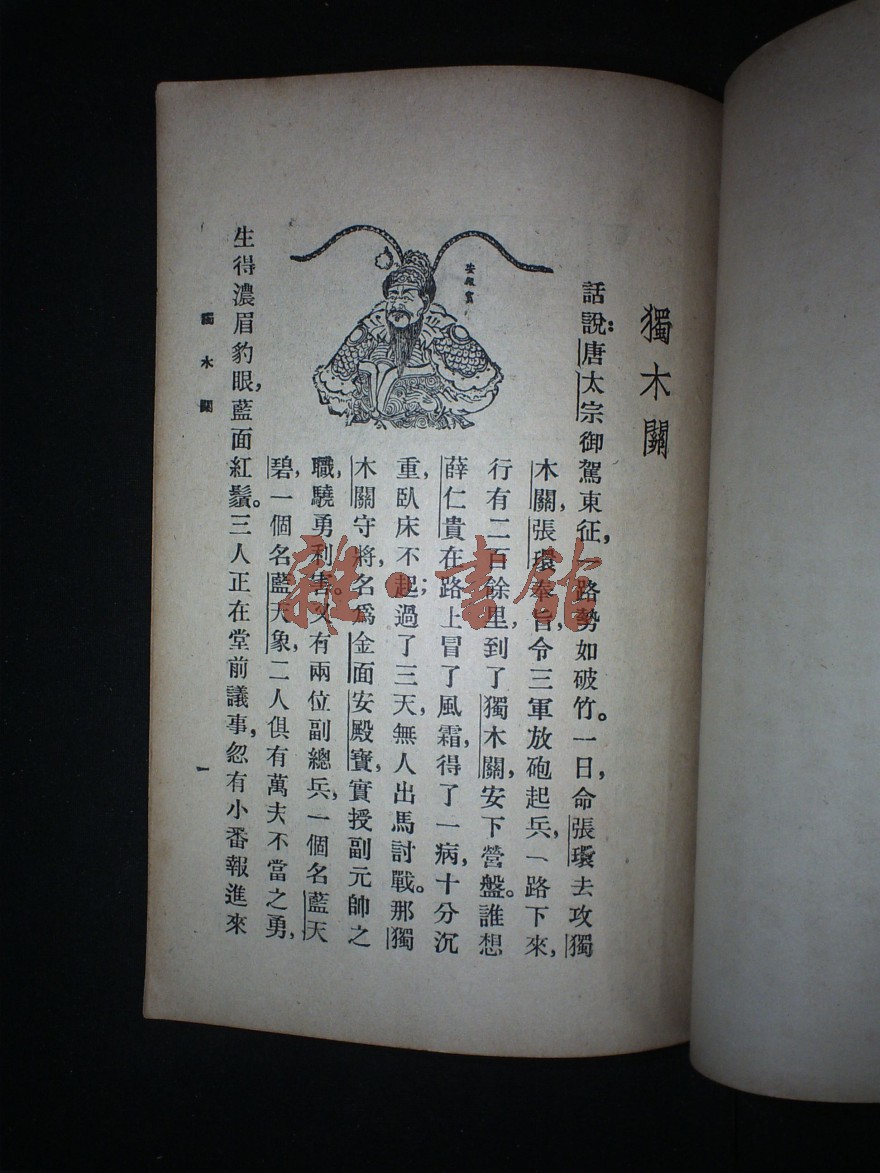 獨木關
話說：唐太宗御駕東征，路勢如破竹。一日，命張環去攻獨
木關，張環奉旨，令三軍放砲起兵，一路下來，
行有二百餘里，到了獨木關，安下營盤。誰想
薛仁貴在路上冒了風霜，得了一病，十分沉
重，臥床不起；過了三天，無人出馬討戰。那獨
木關守將，名爲金面安殿寶，實授副元帥之
職，驍勇利害。又有兩位副總兵，一個名藍天
碧，一個名藍天象，二人俱有萬夫不當之勇，
生得濃眉豹眼，藍面紅鬚。三人正在堂前議事，忽有小番報進來
安殿寶
獨木關
一
雜·書館